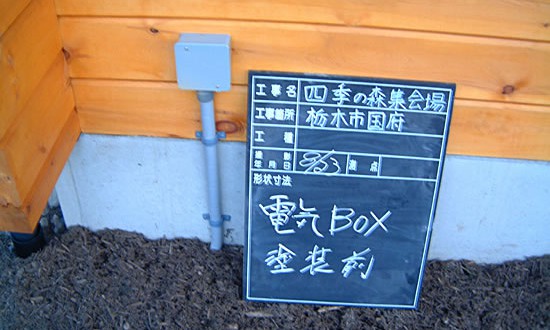 工事名 四季の森集会場
工事箇所 栃木市国府
工種
撮影年月日 測点
形状寸法
電気BOX
塗装前